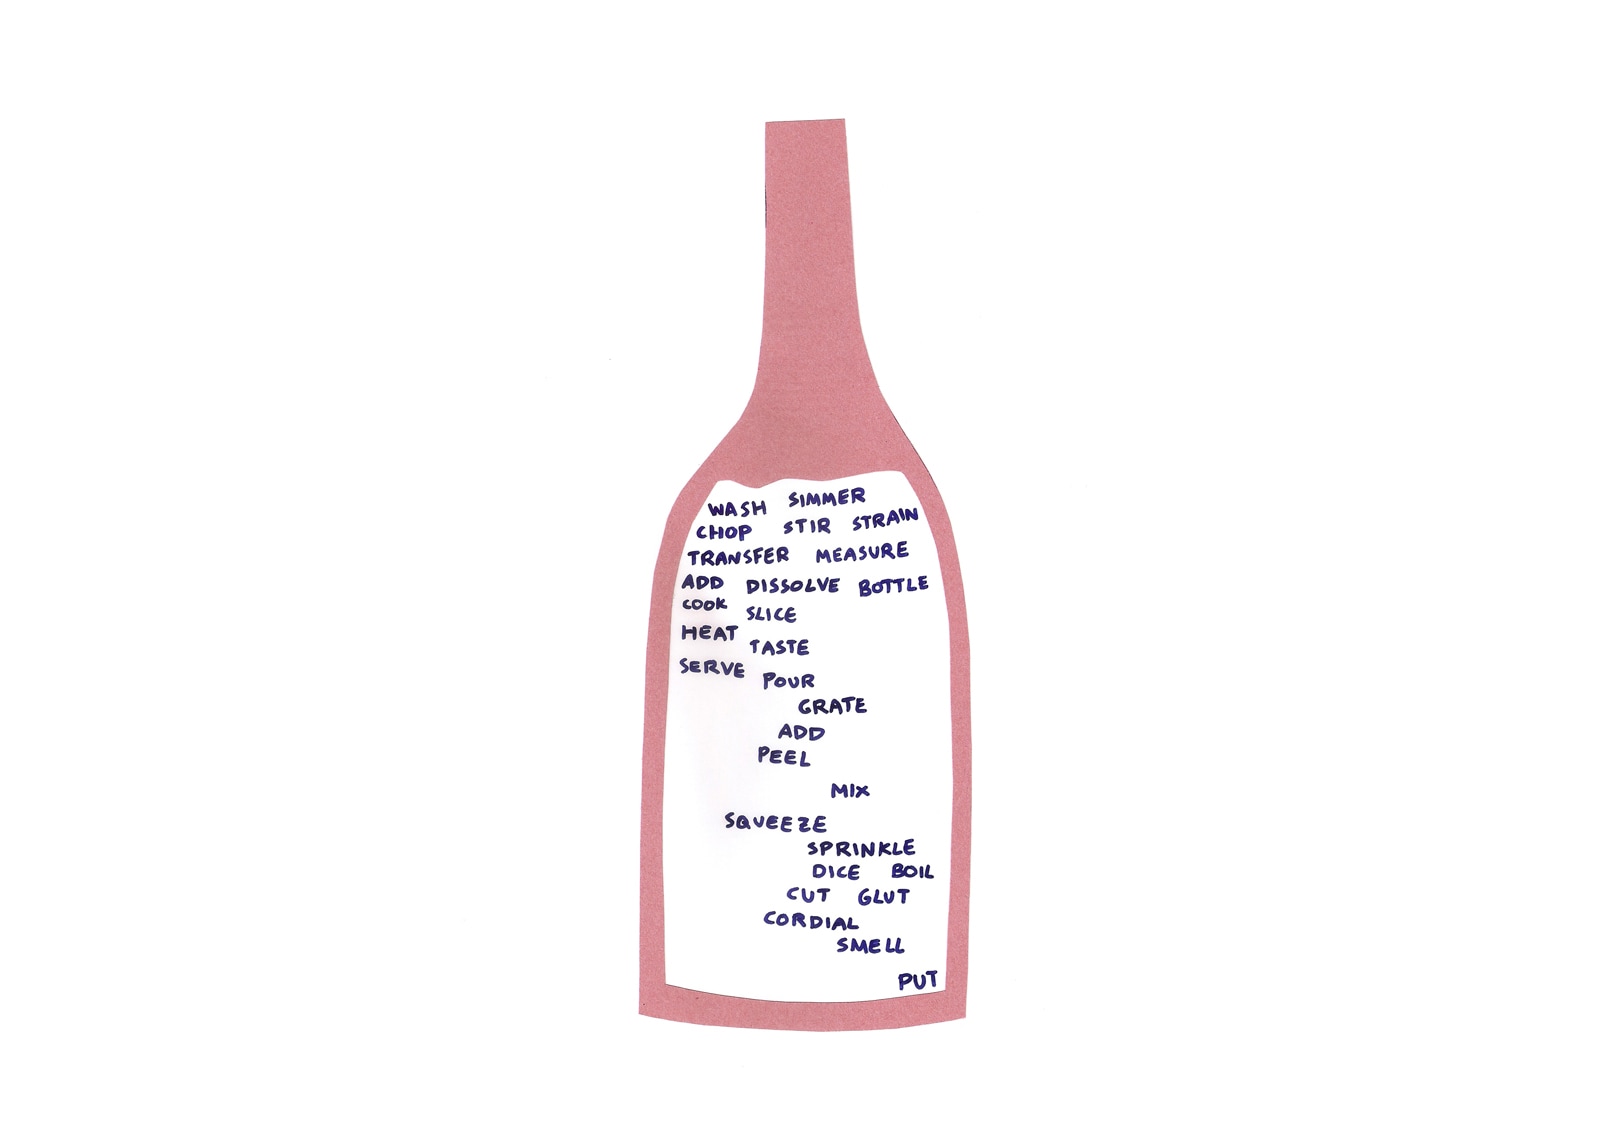 WASH SIMMER
CHOP STIR STRAIN
TRANSFER MEASURE
ADD DISSOLVE BOTTLE
COOK SLICE
HEAT TASTE
SERVE POUR
GRATE
ADD
PEEL
MIX
SQUEEZE
SPRINKLE
DICE BOIL
CUT GLUT
CORDIAL
SMELL
PUT